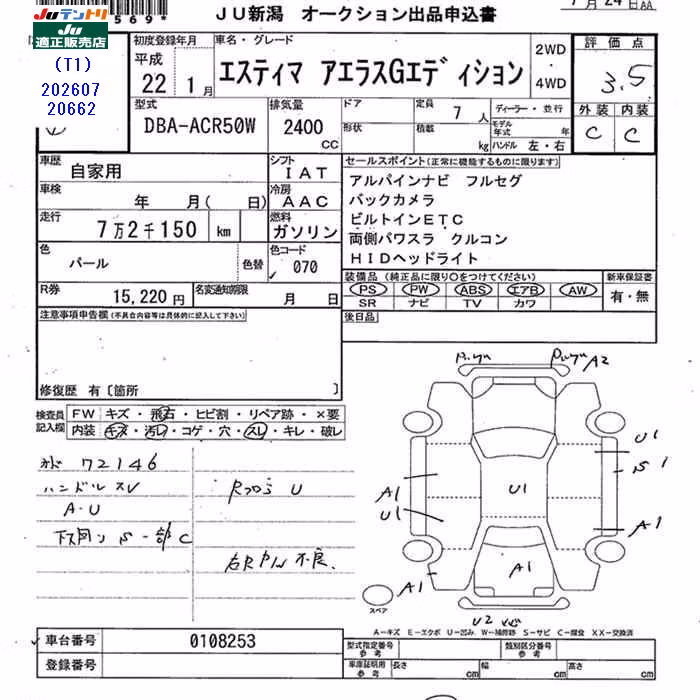 569*
JU新潟 オークション出品申込書
7月24日AA
Ju テントリ
Ju
適正販売店
(T1)
202607
20662
初度登録年月
平成
22 1月
車名・グレード
エスティマ アエラスGエディション
2WD
・
4WD
評価点
3.5
外装 内装
C C
型式
DBA-ACR50W
排気量
2400 CC
ドア
形状
定員 7人
積載 kg
ディーラー・並行
モデル年式 年
ハンドル 左・右
車歴 自家用
シフト IAT
車検 年 月( 日)
冷房 AAC
走行 7万2千150 km
燃料 ガソリン
色 パール 色替
色コード 070
R券 15,220円
名変通知期限 月 日
セールスポイント(正常に機能するものに限ります)
アルパインナビ フルセグ
バックカメラ
ビルトインETC
両側パワスラ クルコン
HIDヘッドライト
装備品(純正品に限り○をつけてください)
PS PW ABS エアB AW
SR ナビ TV カワ
新車保証書
有・無
後日品
注意事項申告欄(不具合内容等は具体的に記入して下さい)
修復歴 有〔箇所 〕
検査員
記入欄
FW キズ・飛石・ヒビ割・リペア跡・×要
内装 キズ・汚レ・コゲ・穴・スレ・キレ・破レ
72146
ハンドルスレ
A・U
下回りS 一部C
U
不良
A2
U1
S1
A1
U1
U1
A1
A1
A1
U2
スペア
A-キズ E-エクボ U-凹み W-補修跡 S-サビ C-腐食 XX-交換済
車台番号 0108253
登録番号
型式指定番号 参考
類別区分番号 参考
車庫証明用 参考
長さ cm 幅 cm 高さ cm